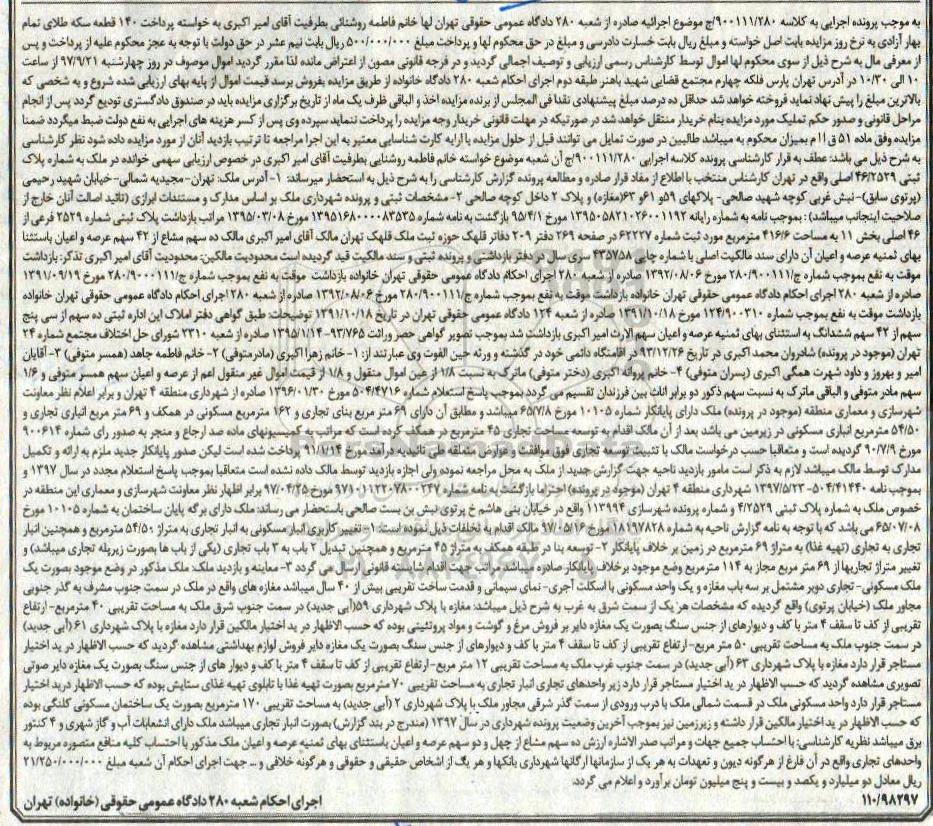 به موجب پرونده اجرایی به کلاسه ۹۰۰۱۱۱/۲۸۰/ج موضوع اجرائیه صادره از شعبه ۲۸۰ دادگاه عمومی حقوقی تهران لها خانم فاطمه روشنائی بطرفیت آقای امیر اکبری به خواسته پرداخت ۱۴۰ قطعه سکه طلای تمام
بهار آزادی به نرخ روز مزایده بابت اصل خواسته و مبلغ ریال بابت خسارت دادرسی و مبلغ در حق محکوم لها و پرداخت مبلغ ۵۰۰/۰۰۰/۰۰۰ ریال بابت نیم عشر در حق دولت با توجه به عجز محکوم علیه از پرداخت و پس
از معرفی مال به شرح ذیل از سوی محکوم لها اموال توسط کارشناس رسمی ارزیابی و توصیف اجمالی گردید و در فرجه قانونی مصون از اعتراض مانده لذا مقرر گردید اموال موصوف در روز چهارشنبه ۹۷/۹/۲۱ از ساعت
۱۰ الی ۱۰/۳۰ در آدرس تهران پارس فلکه چهارم مجتمع قضایی شهید باهنر طبقه دوم اجرای احکام شعبه ۲۸۰ دادگاه خانواده از طریق مزایده بفروش برسد قیمت اموال از پایه بهای ارزیابی شده شروع و به شخصی که
بالاترین مبلغ را پیش نهاد نماید فروخته خواهد شد حداقل ده درصد مبلغ پیشنهادی نقدا فی المجلس از برنده مزایده اخذ و الباقی ظرف یک ماه از تاریخ برگزاری مزایده باید در صندوق دادگستری تودیع گردد پس از انجام
مراحل قانونی و صدور حکم تملیک مورد مزایده بنام خریدار منتقل خواهد شد در صورتیکه در مهلت قانونی خریدار وجه مزایده را پرداخت ننماید سپرده وی پس از کسر هزینه های اجرایی به نفع دولت ضبط میگردد ضمنا
مزایده وفق ماده ۵۱ ق ا ا م بمیزان محکوم به میباشد طالبین در صورت تمایل می توانند قبل از حلول مزایده با ارایه کارت شناسایی معتبر به این اجرا مراجعه تا ترتیب بازدید آنان از مورد مزایده داده شود نظر کارشناسی
به شرح ذیل می باشد: عطف به قرار کارشناسی پرونده کلاسه اجرایی ۹۰۰۱۱۱/۲۸۰/ج آن شعبه موضوع خواسته خانم فاطمه روشنایی بطرفیت آقای امیر اکبری در خصوص ارزیابی سهمی خوانده در ملک به شماره پلاک
ثبتی ۴۶/۲۵۲۹ اصلی واقع در تهران کارشناس منتخب با اطلاع از مفاد قرار صادره و مطالعه پرونده گزارش کارشناسی را به شرح ذیل به استحضار میرساند: ۱- آدرس ملک: تهران-مجیدیه شمالی-خیابان شهید رحیمی
(پرتوی سابق)-نبش غربی کوچه شهید صالحی- پلاکهای ۵۹و ۶۱و ۶۳(مغازه) و پلاک ۲ داخل کوچه صالحی ۲- مشخصات ثبتی و پرونده شهرداری ملک بر اساس مدارک و مستندات ابرازی (تائید اصالت آنان خارج از
صلاحیت اینجانب میباشد): بموجب نامه به شماره رایانه ۱۳۹۵۰۵۸۲۱۰۲۶۰۰۱۱۹۲ مورخ ۹۵/۴/۱ بازگشت به نامه شماره ۱۳۹۵۱۶۸۰۰۰۰۸۳۵۳۵ مورخ ۱۳۹۵/۰۳/۰۸ مراتب بازداشت پلاک ثبتی شماره ۲۵۲۹ فرعی از
۴۶ اصلی بخش ۱۱ به مساحت ۴۱۶/۶ مترمربع مورد ثبت شماره ۶۲۲۳۷ در صفحه ۲۶۹ دفتر ۲۰۹ دفاتر قلهک حوزه ثبت ملک قلهک تهران مالک آقای امیر اکبری مالک ده سهم مشاع از ۴۲ سهم عرصه و اعیان باستثنا
بهای ثمنیه عرصه و اعیان آن دارای سند مالکیت اصلی با شماره چاپی ۴۳۵۷۵۸ سری سال در دفتر بازداشتی و پرونده ثبتی و سند مالکیت قید گردیده است محدودیت مالکین: محدودیت آقای امیر اکبری تذکر: بازداشت
موقت به نفع بموجب شماره ج/۲۸۰/۹۰۰۱۱۱ مورخ ۱۳۹۲/۰۸/۰۶ صادره از شعبه ۲۸۰ اجرای احکام دادگاه عمومی حقوقی تهران خانواده بازداشت موقت به نفع بموجب شماره ج/۲۸۰/۹۰۰۰۱۱۱ مورخ ۱۳۹۱/۰۹/۱۹
صادره از شعبه ۲۸۰ اجرای احکام دادگاه عمومی حقوقی تهران خانواده بازداشت موقت به نفع بموجب شماره ج/۲۸۰/۹۰۰۱۱۱ مورخ ۱۳۹۲/۰۸/۰۶ صادره از شعبه ۲۸۰ اجرای احکام دادگاه عمومی حقوقی تهران خانواده
بازداشت موقت به نفع بموجب شماره ۱۲۴/۹۰۰۳۱۰ مورخ ۱۳۹۱/۱۰/۱۸ صادره از شعبه ۱۲۴ دادگاه عمومی حقوقی تهران در تاریخ ۱۳۹۱/۱۰/۱۸ توضیحات: طبق گواهی دفتر املاک این اداره ثبتی ده سهم از سی پنج
سهم از ۴۲ سهم ششدانگ به استثنای بهای ثمنیه عرصه و اعیان سهم الارث امیر اکبری بازداشت شد بموجب تصویر گواهی حصر وراثت ۹۳/۷۶۵-۱۳۹۵/۱/۱۴ صادره از شعبه ۲۳۱۰ شورای حل اختلاف مجتمع شماره ۲۴
تهران (موجود در پرونده) شادروان محمد اکبری در تاریخ ۹۳/۱۲/۲۶ در اقامتگاه دائمی خود در گذشته و ورثه حین الفوت وی عبارتند از: ۱-خانم زهرا اکبری (مادرمتوفی) ۲-خانم فاطمه جاهد (همسر متوفی) ۳-آقایان
امیر و بهروز و داود شهرت همگی اکبری (پسران متوفی) ۴- خانم پروانه اکبری (دختر متوفی) ماترک به نسبت ۱/۸ از عین اموال منقول و ۱/۸ از قیمت اموال غیر منقول اعم از عرصه و اعیان سهم همسر متوفی و ۱/۶
سهم مادر متوفی و الباقی ماترک به نسبت سهم ذکور دو برابر اناث بین فرزندان تقسیم می گردد بموجب پاسخ استعلام شماره ۵۰۴/۴۷۱۶ مورخ ۱۳۹۶/۰۱/۳۰ صادره از شهرداری منطقه ۴ تهران و برابر اعلام نظر معاونت
شهرسازی و معماری منطقه (موجود در پرونده) ملک دارای پایانکار شماره ۱۰۱۰۵ مورخ ۶۵/۷/۸ میباشد و مطابق آن دارای ۶۹ متر مربع بنای تجاری و ۱۶۲ مترمربع مسکونی در همکف و ۶۹ متر مربع انباری تجاری و
۵۴/۵۰ مترمربع انباری مسکونی در زیرزمین می باشد بعد از آن مالک اقدام به توسعه مساحت تجاری ۴۵ مترمربع در همکف کرده است که مراتب به کمیسیونهای ماده صد ارجاع و منجر به صدور رای شماره ۹۰۰۶۱۴
مورخ ۹۰/۷/۹ گردیده است و متعاقبا حسب درخواست مالک با تثبیت توسعه تجاری فوق موافقت و عوارض متعلقه طی تائیدیه درآمد مورخ ۹۱/۱/۱۴ پرداخت شده است لیکن صدور پایانکار جدید ملزم به ارائه و تکمیل
مدارک توسط مالک میباشد لازم به ذکر است مامور بازدید ناحیه جهت گزارش جدید از ملک به محل مراجعه نموده ولی اجازه بازدید توسط مالک داده نشده است متعاقبا بموجب پاسخ استعلام مجدد در سال ۱۳۹۷ و
بموجب نامه ۵۰۴/۴۱۴۴۰-۱۳۹۷/۵/۲۳ شهرداری منطقه ۴ تهران (موجود در پرونده) احتراما بازگشت به نامه شماره ۹۷۱۰۱۱۲۲۰۷۸۰۰۲۴۷ مورخ ۹۷/۰۴/۲۵ برابر اظهار نظر معاونت شهرسازی و معماری این منطقه در
خصوص ملک به شماره پلاک ثبتی ۴/۲۵۲۹ و شماره پرونده شهرسازی ۱۱۳۹۹۴ واقع در خیابان بنی هاشم خ پرتوی نبش بن بست صالحی باستحضار می رساند: ملک دارای برگه پایان ساختمان به شماره ۱۰۱۰۵ مورخ
۶۵/۰۷/۰۸ می باشد که با توجه به نامه گزارش ناحیه به شماره ۱۸۱۹۷۸۲۸ مورخ ۹۷/۰۵/۱۶ مالک اقدام به تخلفات ذیل نموده است: ۱-تغییر کاربری انبار مسکونی به انبار تجاری به متراژ ۵۴/۵۰ مترمربع و همچنین انبار
تجاری به تجاری (تهیه غذا) به متراژ ۶۹ مترمربع در زمین بر خلاف پایانکار ۲- توسعه بنا در طبقه همکف به متراژ ۴۵ مترمربع و همچنین تبدیل ۲ باب به ۳ باب تجاری (یکی از باب ها بصورت زیرپله تجاری میباشد) و
تغییر متراژ تجاریها از ۶۹ متر مربع مجاز به ۱۱۴ مترمربع وضع موجود برخلاف پایانکار صادره میباشد مراتب جهت اقدام شایسته قانونی ارسال می گردد ۳- معاینه و بازدید ملک: ملک مذکور در وضع موجود بصورت یک
ملک مسکونی-تجاری دوبر مشتمل بر سه باب مغازه و یک واحد مسکونی با اسکلت آجری-نمای سیمانی و قدمت ساخت تقریبی بیش از ۴۰ سال میباشد مغازه های واقع در ملک در سمت جنوب مشرف به گذر جنوبی
مجاور ملک (خیابان پرتوی) واقع گردیده که مشخصات هر یک از سمت شرق به غرب به شرح ذیل میباشد: مغازه با پلاک شهرداری ۵۹(آبی جدید) در سمت جنوب شرق ملک به مساحت تقریبی ۴۰ مترمربع-ارتفاع
تقریبی از کف تا سقف ۴ متر با کف و دیوارهای از جنس سنگ بصورت یک مغازه دایر بر فروش مرغ و گوشت و مواد پروتئینی بوده که حسب الاظهار در ید اختیار مالکین قرار دارد مغازه با پلاک شهرداری ۶۱ (آبی جدید)
در سمت جنوب ملک به مساحت تقریبی ۵۰ متر مربع-ارتفاع تقریبی از کف تا سقف ۴ متر با کف و دیوارهای از جنس سنگ بصورت یک مغازه دایر فروش لوازم بهداشتی مشاهده گردید که حسب الاظهار در ید اختیار
مستاجر قرار دارد مغازه با پلاک شهرداری ۶۳ (آبی جدید) در سمت جنوب غرب ملک به مساحت تقریبی ۱۲ متر مربع-ارتفاع تقریبی از کف تا سقف ۴ متر با کف و دیوار های از جنس سنگ بصورت یک مغازه دایر صوتی
تصویری مشاهده گردید که حسب الاظهار در ید اختیار مستاجر قرار دارد زیر واحدهای تجاری انبار تجاری به مساحت تقریبی ۷۰ مترمربع بصورت تهیه غذا با تابلوی تهیه غذای ستایش بوده که حسب الاظهار درید اختیار
مستاجر قرار دارد واحد مسکونی ملک در قسمت شمالی ملک با درب ورودی از سمت گذر شرقی مجاور ملک با پلاک شهرداری ۲ (آبی جدید) به مساحت تقریبی ۱۷۰ مترمربع بصورت یک ساختمان مسکونی کلنگی بوده
که حسب الاظهار در ید اختیار مالکین قرار داشته و زیرزمین نیز بموجب آخرین وضعیت پرونده شهرداری در سال ۱۳۹۷ (مندرج در بند گزارش) بصورت انبار تجاری میباشد ملک دارای انشعابات آب و گاز شهری و ۴ کنتور
برق میباشد نظریه کارشناسی: با احتساب جمیع جهات و مراتب صدر الاشاره ارزش ده سهم مشاع از چهل و دو سهم عرصه و اعیان باستثنای بهای ثمنیه عرصه و اعیان ملک مذکور با احتساب کلیه منافع متصوره مربوط به
واحدهای تجاری واقع در آن فارغ از هرگونه دیون و تعهدات به هر یک از سازمانها ارگانها شهرداری بانکها و هر یک از اشخاص حقیقی و حقوقی و هرگونه خلافی و ... جهت اجرای احکام آن شعبه مبلغ ۲۱/۲۵۰/۰۰۰/۰۰۰
ریال معادل دو میلیارد و یکصد و بیست و پنج میلیون تومان برآورد و اعلام می گردد.
۱۱۰/۹۸۲۹۷
اجرای احکام شعبه ۲۸۰ دادگاه عمومی حقوقی (خانواده) تهران